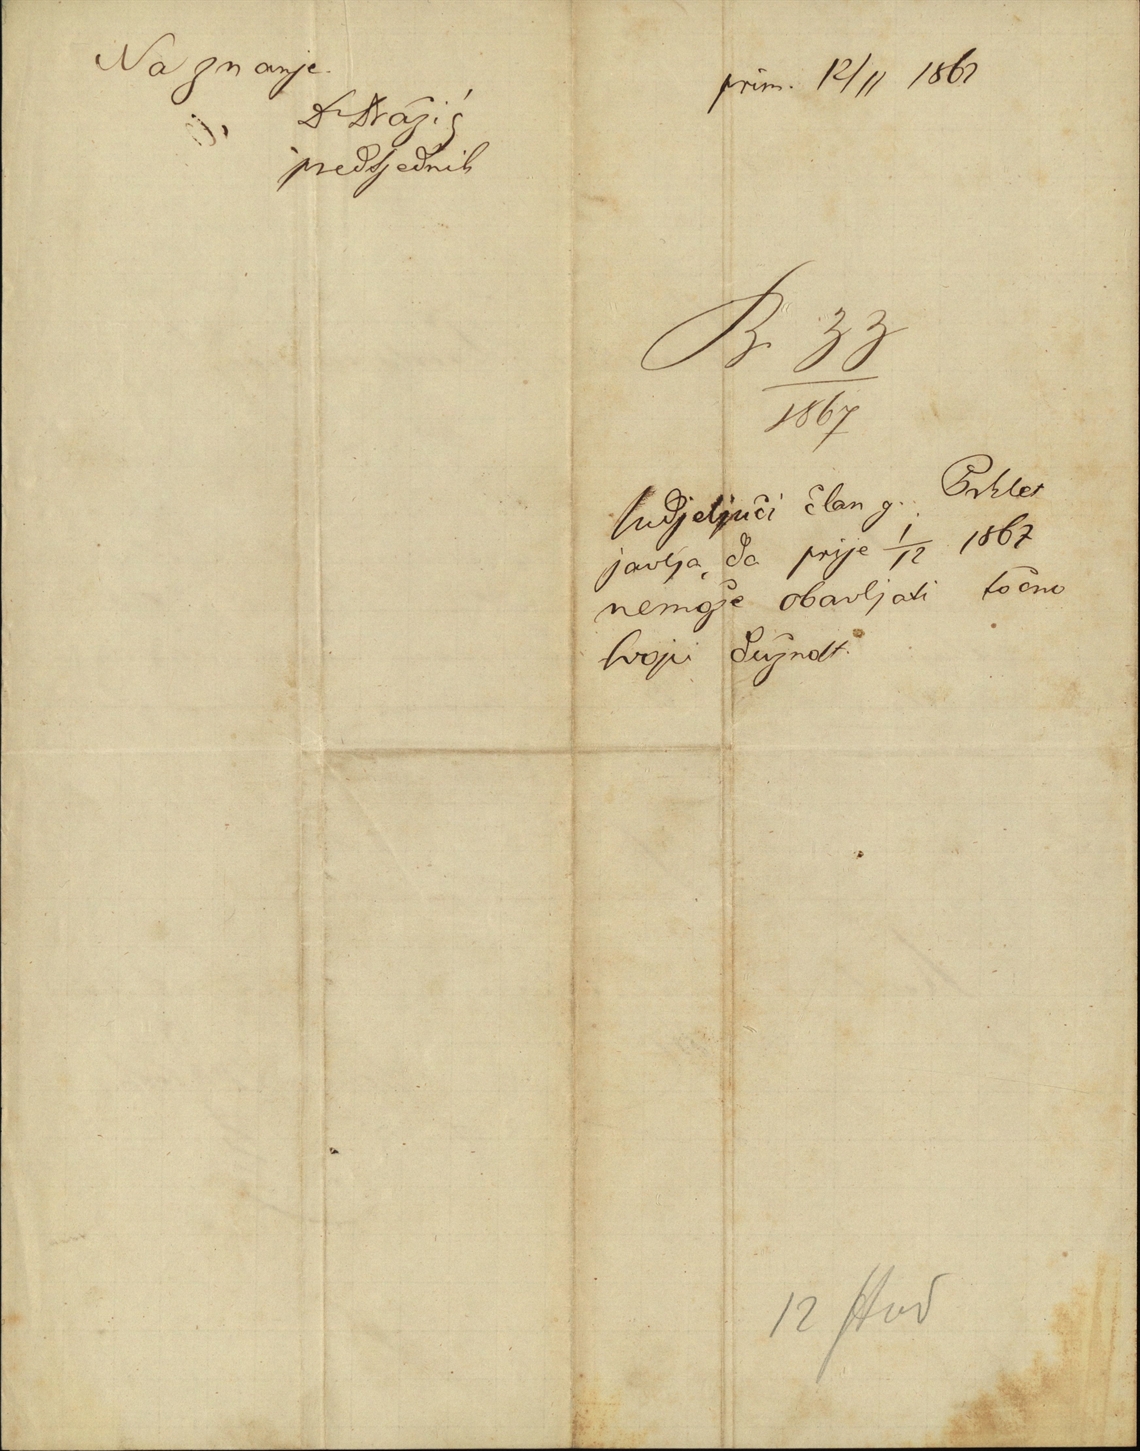 Na znanje.
Dr Dražić
predsjednik
prim. 12/11 1867
Br 33
1867
Sudjelujući član g. Prkles
javlja, da prije 1/12 1867
nemože obavljati točno
svoju dužnost.
12 Stud